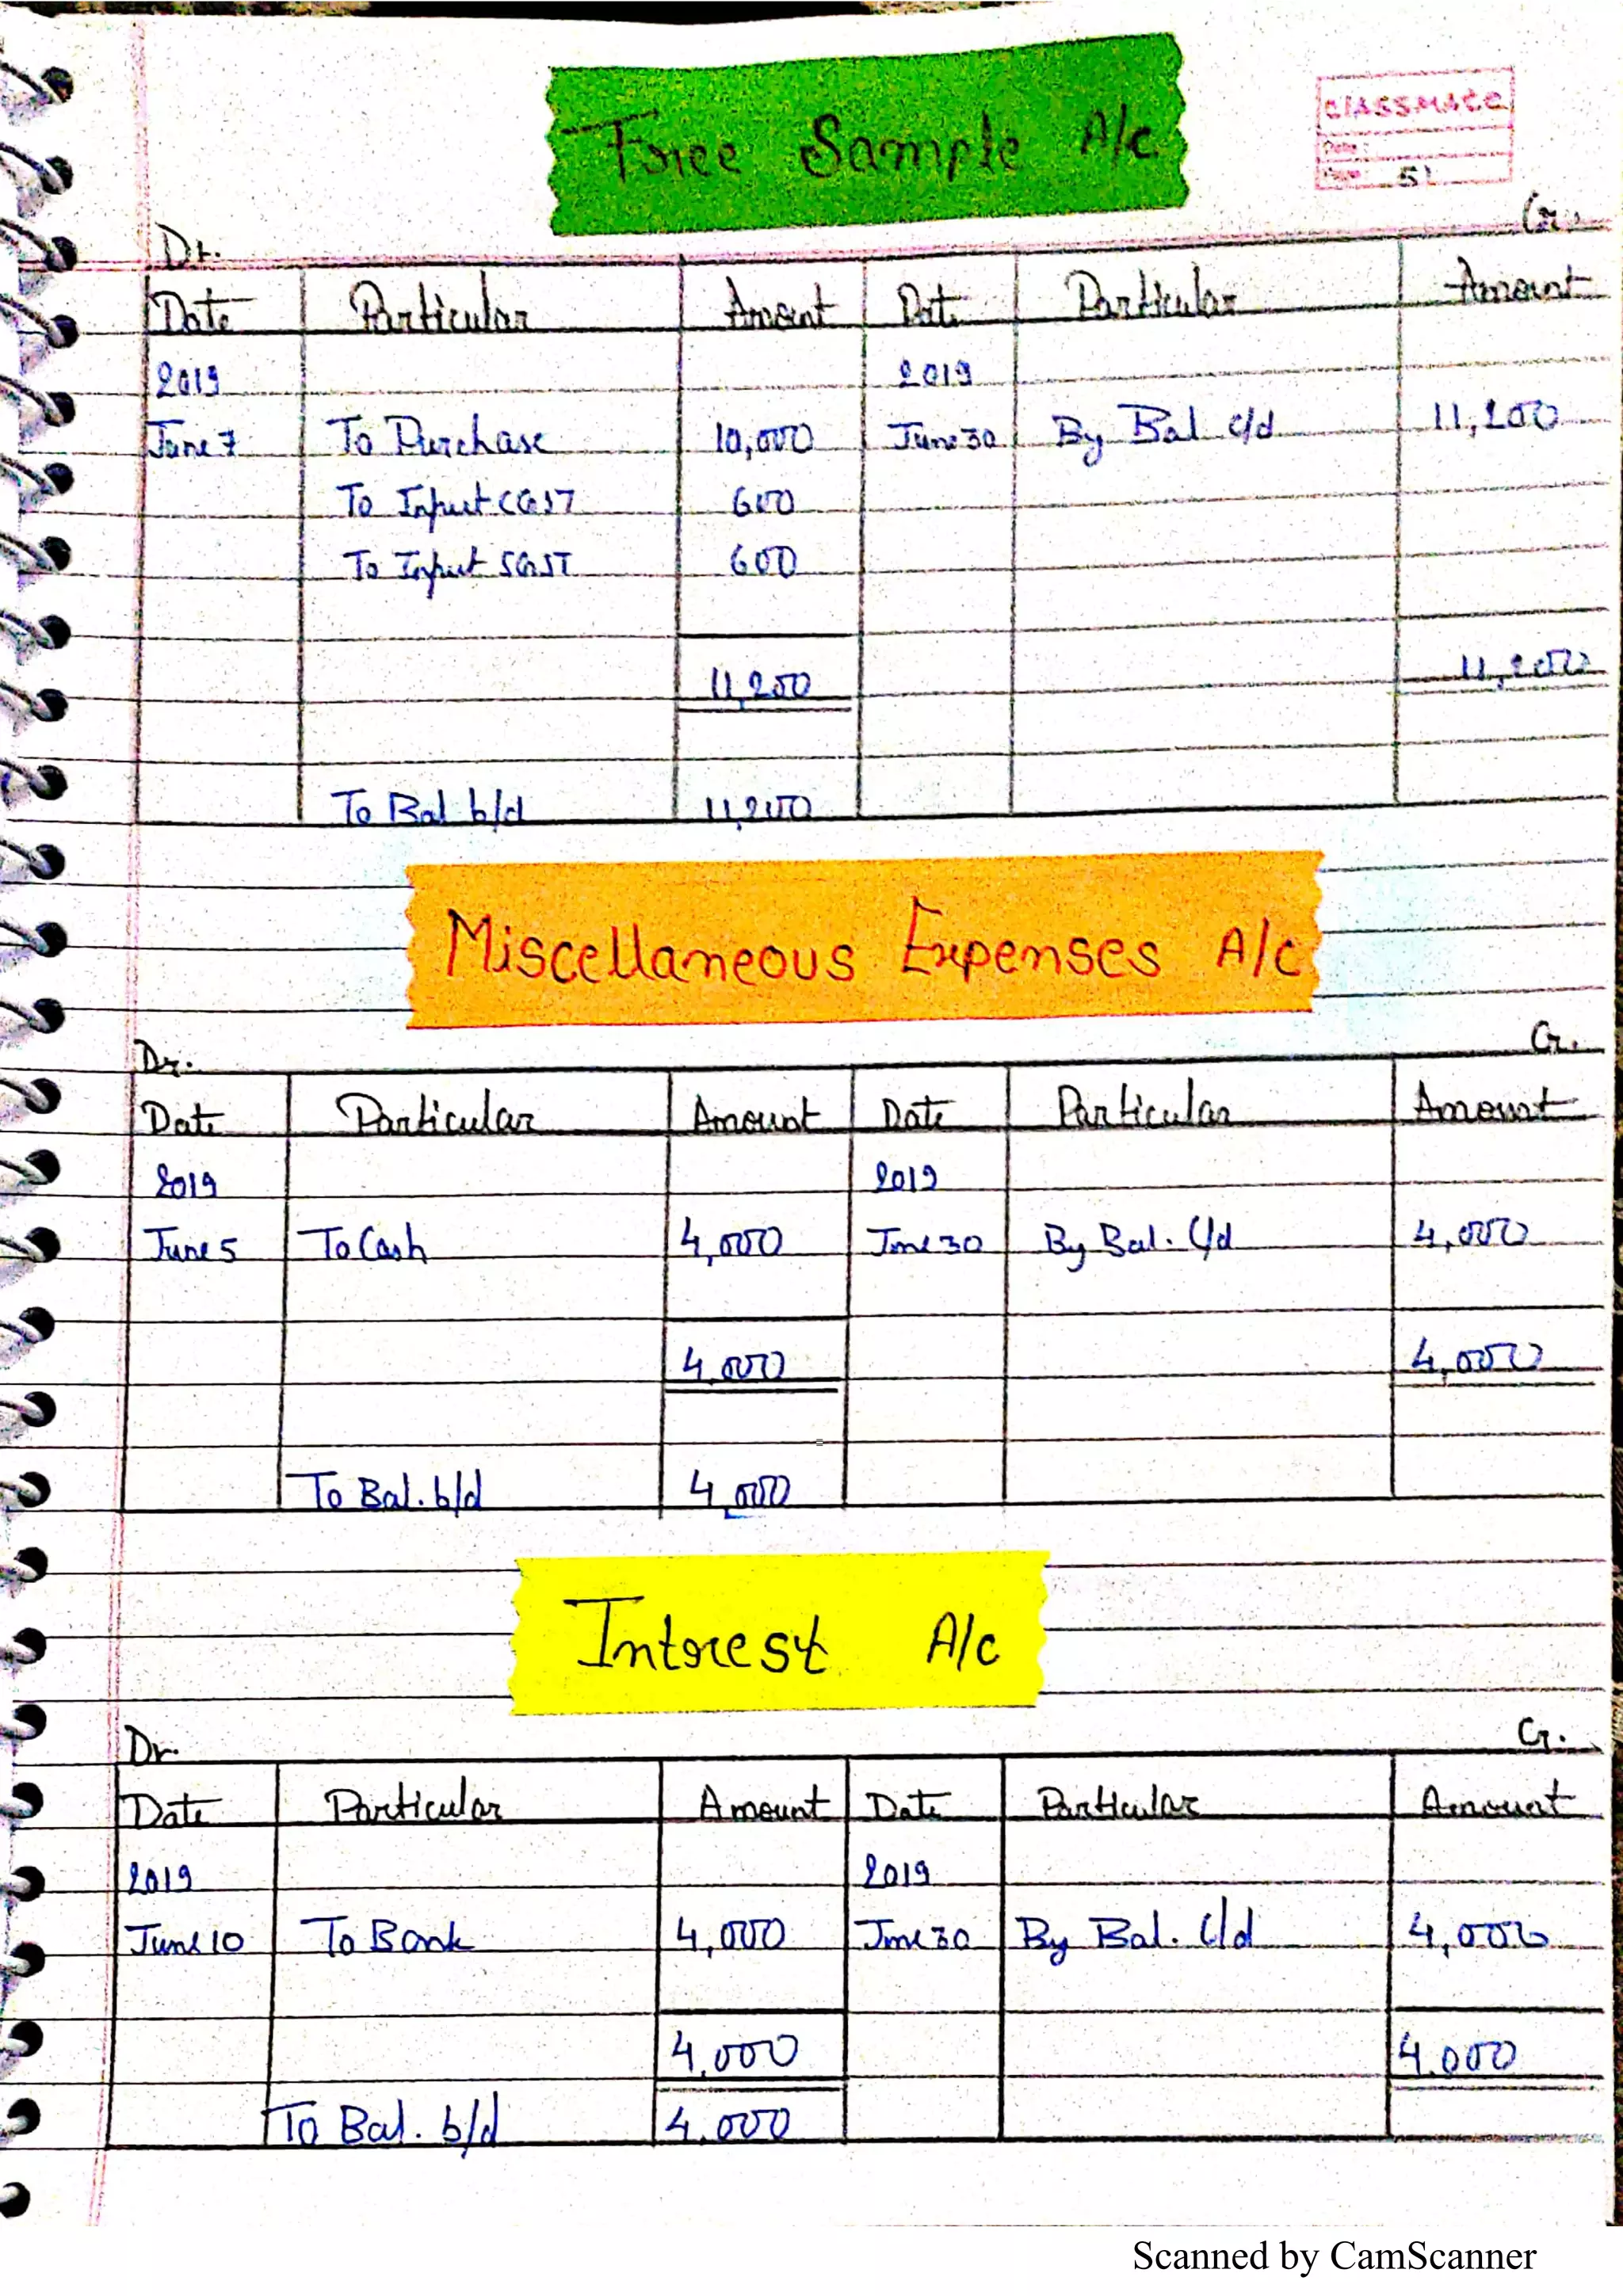 Free Sample A/c
CLASSMATE
Date :
Page 51
Dr. Cr.
Date Particular Amount Date Particular Amount
2019 2019
June 7 To Purchase 10,000 June 30 By Bal c/d 11,200
To Input CGST 600
To Input SGST 600
11,200 11,200
To Bal b/d 11,200
Miscellaneous Expenses A/c
Dr. Cr.
Date Particular Amount Date Particular Amount
2019 2019
June 5 To Cash 4,000 June 30 By Bal. c/d 4,000
4,000 4,000
To Bal. b/d 4,000
Interest A/c
Dr. Cr.
Date Particular Amount Date Particular Amount
2019 2019
June 10 To Bank 4,000 June 30 By Bal. c/d 4,000
4,000 4,000
To Bal. b/d 4,000
Scanned by CamScanner